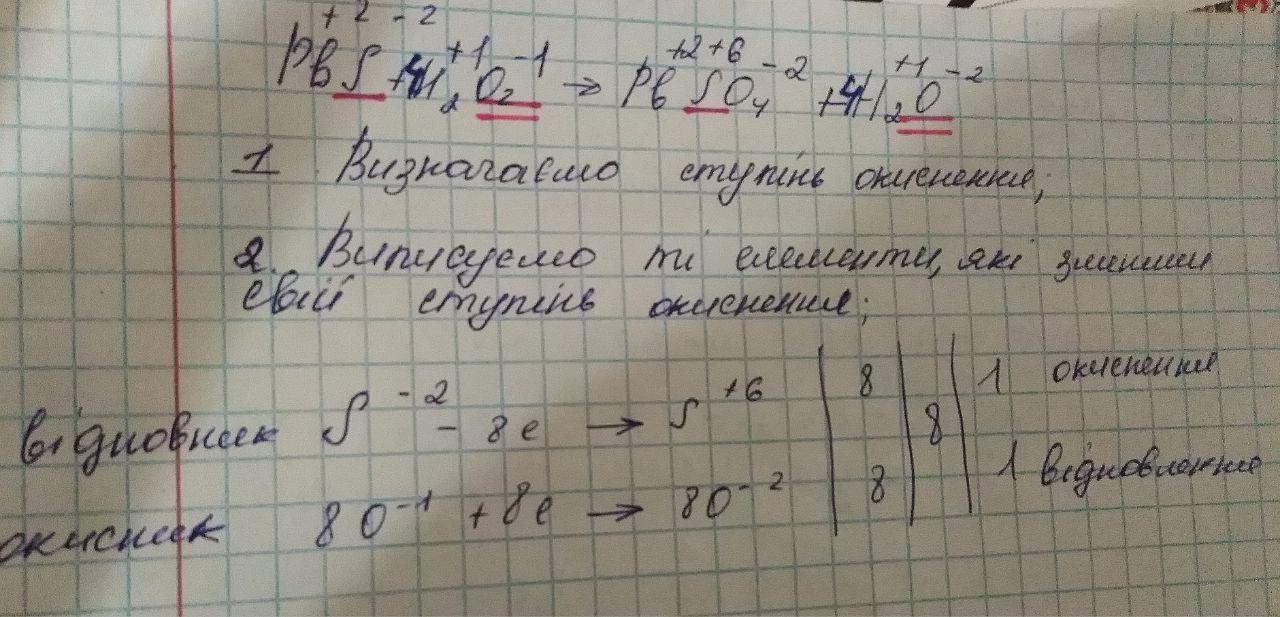 +2 -2 +1 -1 +2 +6 -2 +1 -2
PbS + 4H₂O₂ → PbSO₄ + 4H₂O
1 Визначаємо ступінь окиснення;
2. Виписуємо ті елементи, які змінили
свій ступінь окиснення;
відновник S⁻² - 8e → S⁺⁶ | 8 | 8 | 1 окиснення
окисник 8O⁻¹ + 8e → 8O⁻² | 8 | | 1 відновлення